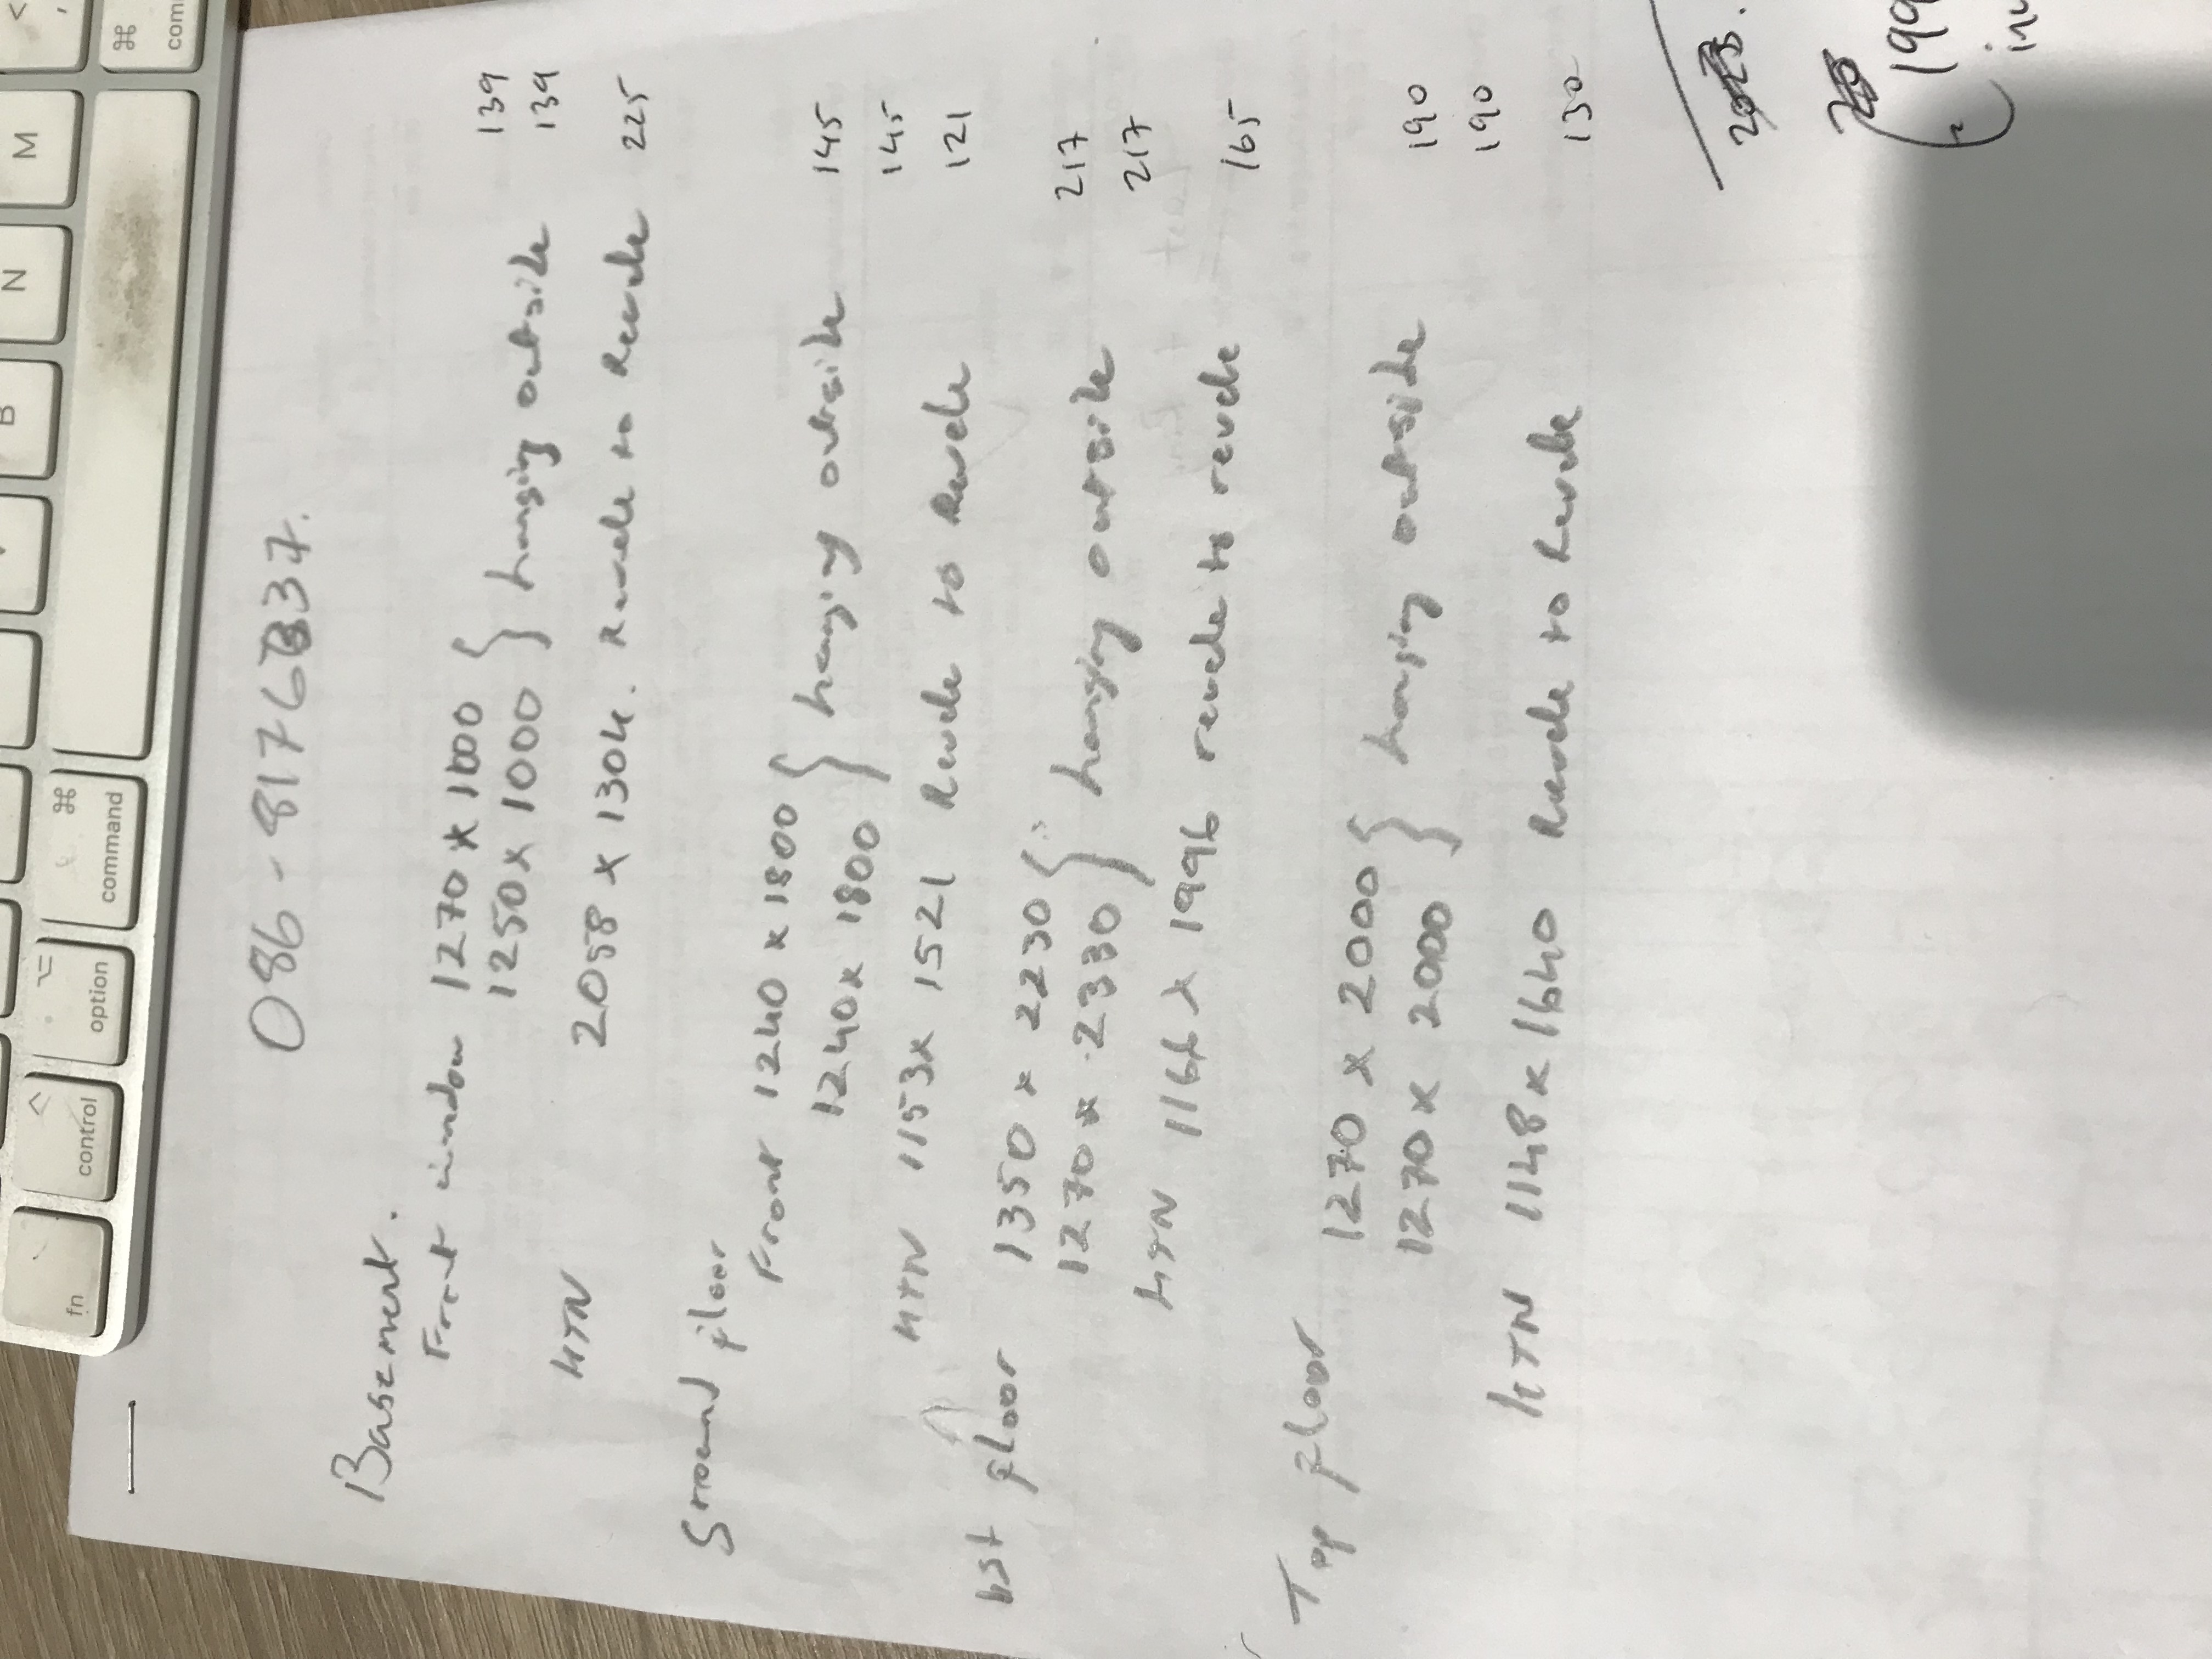 086-8176337.
Basement.
Front window 1270 x 1000 } 139
1250 x 1000 } hanging outside 139
KTN 2058 x 1304. Revele to Revele 225
Ground floor
Front 1240 x 1800 } 145
1240 x 1800 } hanging outside 145
KTN 1153 x 1521 Revele to Revele 121
1st floor 1350 x 2230 } 217
1270 x 2330 } hanging outside 217
KTN 1166 x 1996 revele to revele 165
Top floor 1270 x 2000 } 190
1270 x 2000 } hanging outside 190
KTN 1148 x 1640 Revele to Revele 130
199
fn
control
option
command
⌘
B
N
M
⌘
com